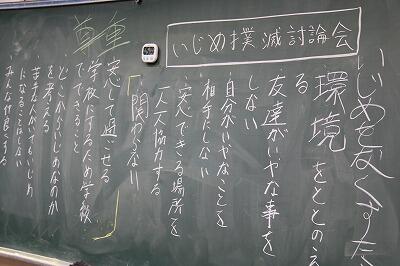 いじめ撲滅討論会
いじめをなくすた
環境をととのえ
る
・友達がいやな事を
しない
・自分がいやなことを
相手にしない
・安心できる場所を
・一人一人協力する
「関わらない」
尊重
安心して過ごせる
学校にするため学級
でできること
どこからいじめなのか
を考える
みんな仲良くする